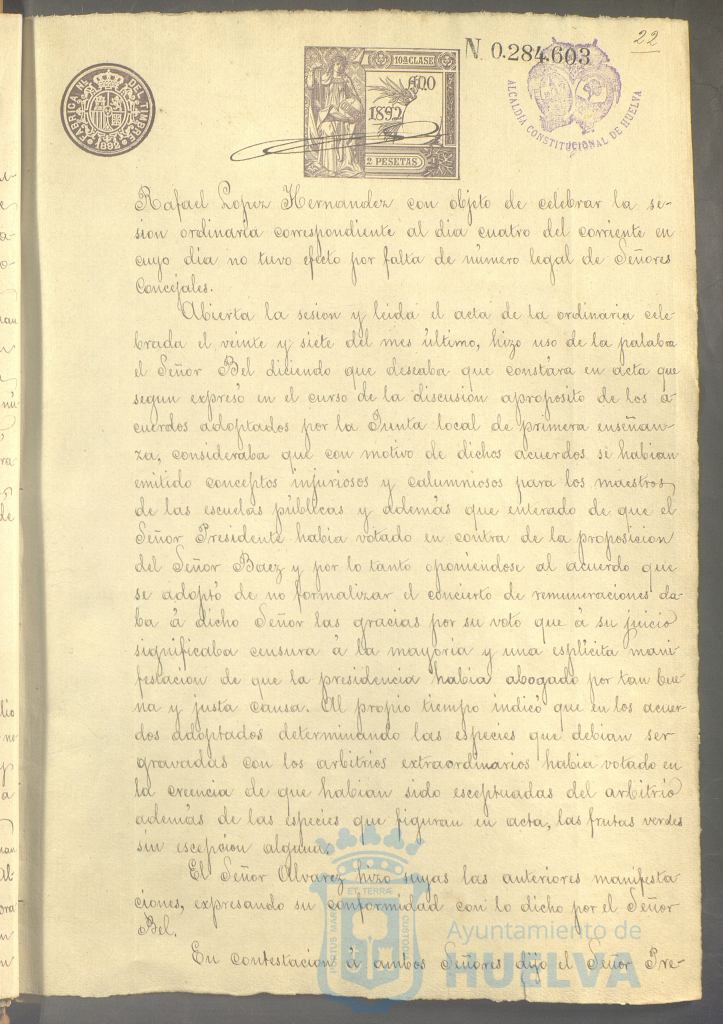 22
N 0.284.603
FABRICA NAL DEL TIMBRE
1892
10ª CLASE
AÑO
1892
2 PESETAS
ALCALDIA CONSTITUCIONAL DE HUELVA
Rafael Lopez Hernandez con objeto de celebrar la se-
sion ordinaria correspondiente al dia cuatro del corriente en
cuyo dia no tuvo efecto por falta de número legal de Señores
Concejales.
Abierta la sesion y leida el acta de la ordinaria cele-
brada el veinte y siete del mes último, hizo uso de la palabra
el Señor Bel diciendo que deseaba que constára en acta que
segun expresó en el curso de la discusión aproposito de los a-
cuerdos adoptados por la Junta local de primera enseñan-
za, consideraba que con motivo de dichos acuerdos se habian
emitido conceptos injuriosos y calumniosos para los maestros
de las escuelas públicas y además que enterado de que el
Señor Presidente habia votado en contra de la proposicion
del Señor Baez y por lo tanto oponiendose al acuerdo que
se adoptó de no formalizar el concierto de remuneraciones da-
ba á dicho Señor las gracias por su voto que á su juicio
significaba censura á la mayoria y una esplicita mani-
festacion de que la presidencia habia abogado por tan bue-
na y justa causa. Al propio tiempo indicó que en los acuer-
dos adoptados determinando las especies que debian ser
gravadas con los arbitrios extraordinarios habia votado en
la creencia de que habian sido esceptuadas del arbitrio
además de las especies que figuran en acta, las frutas verdes
sin escepcion alguna.
El Señor Alvarez hizo suyas las anteriores manifesta-
ciones, expresando su conformidad con lo dicho por el Señor
Bel.
En contestacion á ambos Señores dijo el Señor Pre-
PORTUS MARIS ET TERRÆ CUSTODIA
Ayuntamiento de
HUELVA